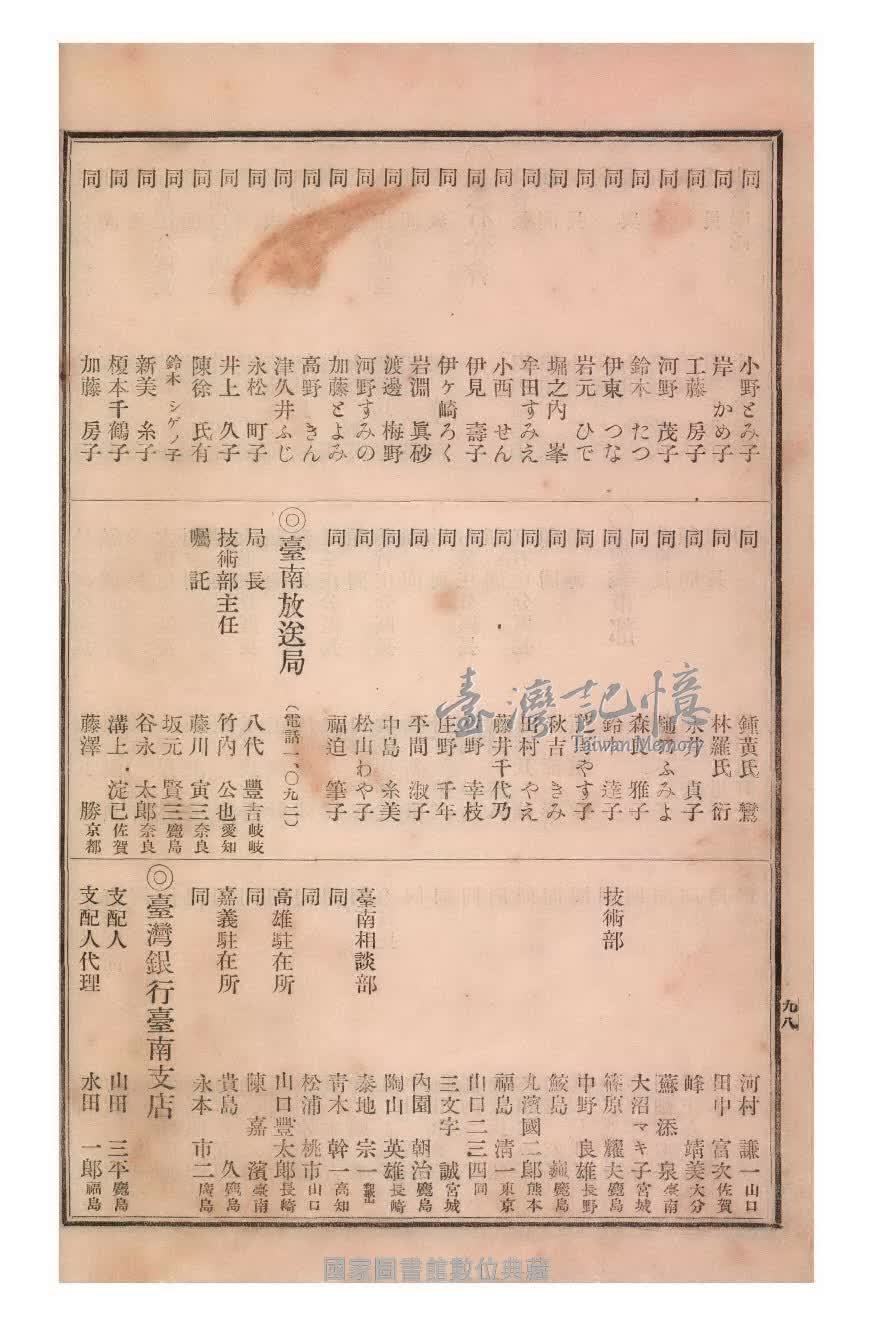 同 小野とみ子
同 岸 かめ子
同 工藤 房子
同 河野 茂子
同 鈴木 たつ
同 伊東 つな
同 岩元 ひで
同 堀之内 峯
同 牟田すみえ
同 小西 せん
同 伊見 壽子
同 伊ヶ崎ろく
同 岩淵 眞砂
同 渡邊 梅野
同 河野すみの
同 加藤とよみ
同 高野 きん
同 津久井ふじ
同 永松 町子
同 井上 久子
同 陳徐 氏有
同 鈴木 シゲノ子
同 新美 糸子
同 榎本千鶴子
同 加藤 房子
同 鍾黃氏 鸞
同 林羅氏 衍
同 貞子
同 ふみよ
同 森良 雅子
同 鈴 達子
同 やす子
同 秋吉 きみ
同 田村 やえ
同 藤井千代乃
同 野 幸枝
同 庄野 千年
同 平間 淑子
同 中島 糸美
同 松山わや子
同 福迫 筆子
◎臺南放送局 (電話一、〇九二)
局長 八代 豐吉 岐岐
技術部主任 竹內 公也 愛知
囑託 藤川 寅三 奈良
坂元 賢三 鹿島
谷永 太郎 奈良
溝上 淀巳 佐賀
藤澤 勝 京都
河村 謙一 山口
田中 富次 佐賀
峰 靖美 大分
蘇 添泉 臺南
大沼マキ子 宮城
技術部 篠原 耀夫 鹿島
中野 良雄 長野
鮫島 巍 鹿島
丸濱國二郎 熊本
福島 清一 東京
山口二三四 同
三文字 誠 宮城
內園 朝治 鹿島
陶山 英雄 長崎
臺南相談部 泰地 宗一 和歌山
同 青木 幹一 高知
同 松浦 桃市 山口
高雄駐在所 山口豐太郎 長崎
同 陳 嘉濱 臺南
嘉義駐在所 貴島 久 鹿島
同 永本 市二 廣島
◎臺灣銀行臺南支店
支配人 山田 三平 鹿島
支配人代理 水田 一郎 福島
九八
臺灣記憶
Taiwan Memory
國家圖書館數位典藏